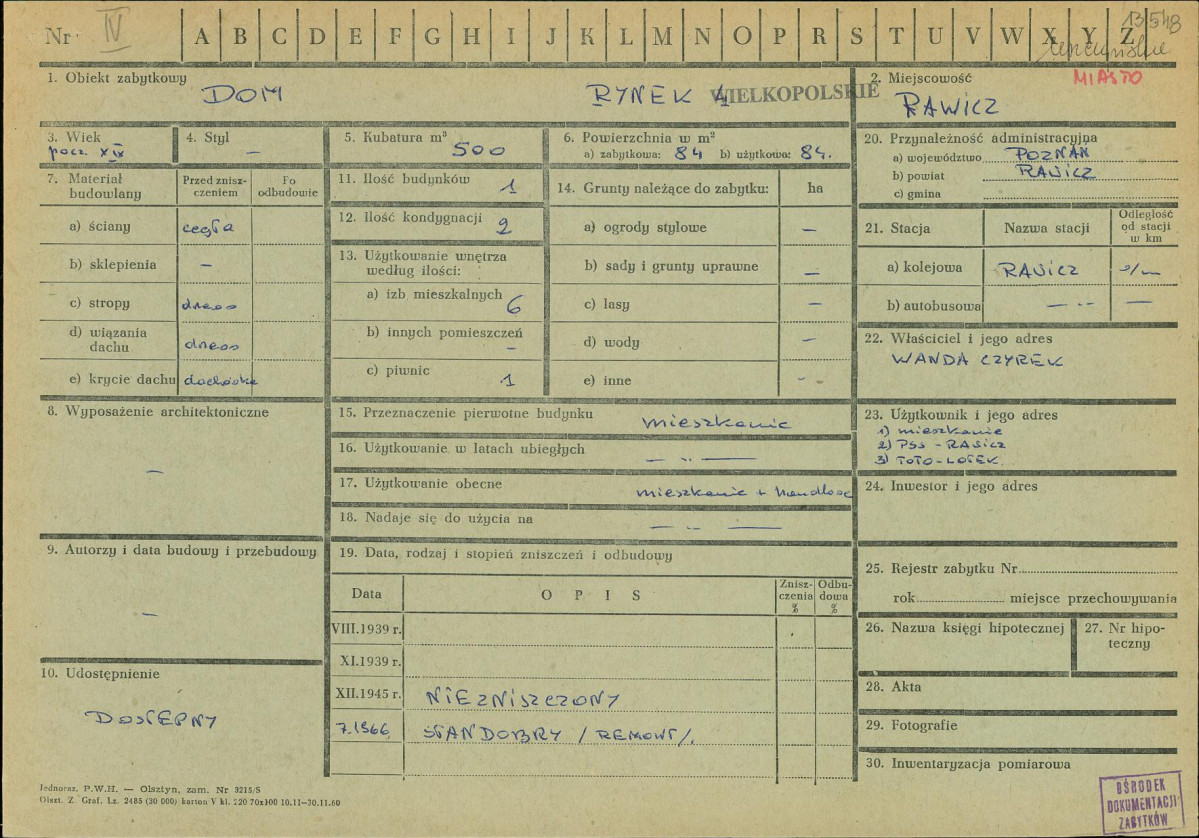 Nr IV A B C D E F G H I J K L M N O P R S T U V W X Y Z 13548
1. Obiekt zabytkowy
DOM RYNEK 4 WIELKOPOLSKIE
2. Miejscowość MIASTO
RAWICZ
3. Wiek
pocz. XIX
4. Styl
—
5. Kubatura m³
500
6. Powierzchnia w m²
a) zabytkowa: 84 b) użytkowa: 84.
7. Materiał budowlany
Przed zniszczeniem
Po odbudowie
a) ściany cegła
b) sklepienia —
c) stropy drewo
d) wiązania dachu drewo
e) krycie dachu dachówka
8. Wyposażenie architektoniczne
—
9. Autorzy i data budowy i przebudowy
—
10. Udostępnienie
DOSTĘPNY
11. Ilość budynków 1
12. Ilość kondygnacji 2
13. Użytkowanie wnętrza według ilości:
a) izb mieszkalnych 6
b) innych pomieszczeń —
c) piwnic 1
14. Grunty należące do zabytku: ha
a) ogrody stylowe —
b) sady i grunty uprawne —
c) lasy —
d) wody —
e) inne - -
15. Przeznaczenie pierwotne budynku mieszkanie
16. Użytkowanie w latach ubiegłych — „ —
17. Użytkowanie obecne mieszkanie +
18. Nadaje się do użycia na — „ —
19. Data, rodzaj i stopień zniszczeń i odbudowy
Data
OPIS
Zniszczenia %
Odbudowa %
VIII.1939 r.
XI.1939 r.
XII.1945 r. NIEZNISZCZONY
7.1966 STAN DOBRY / REMONT/.
20. Przynależność administracyjna
a) województwo POZNAŃ
b) powiat RAWICZ
c) gmina
21. Stacja
Nazwa stacji
Odległość od stacji w km
a) kolejowa RAWICZ
b) autobusowa — „ — —
22. Właściciel i jego adres
WANDA CZYREK
23. Użytkownik i jego adres
1) mieszkanie
2) PSS - RAWICZ
3) TOTO-LOTEK.
24. Inwestor i jego adres
25. Rejestr zabytku Nr
rok miejsce przechowywania
26. Nazwa księgi hipotecznej
27. Nr hipoteczny
28. Akta
29. Fotografie
30. Inwentaryzacja pomiarowa
Jednoraz. P.W.H. — Olsztyn, zam. Nr 3215/S
Olszt. Z. Graf. Lz. 2485 (30 000) karton V kl. 220 70x100 10.11—30.11.60
OŚRODEK
DOKUMENTACJI
ZABYTKÓW